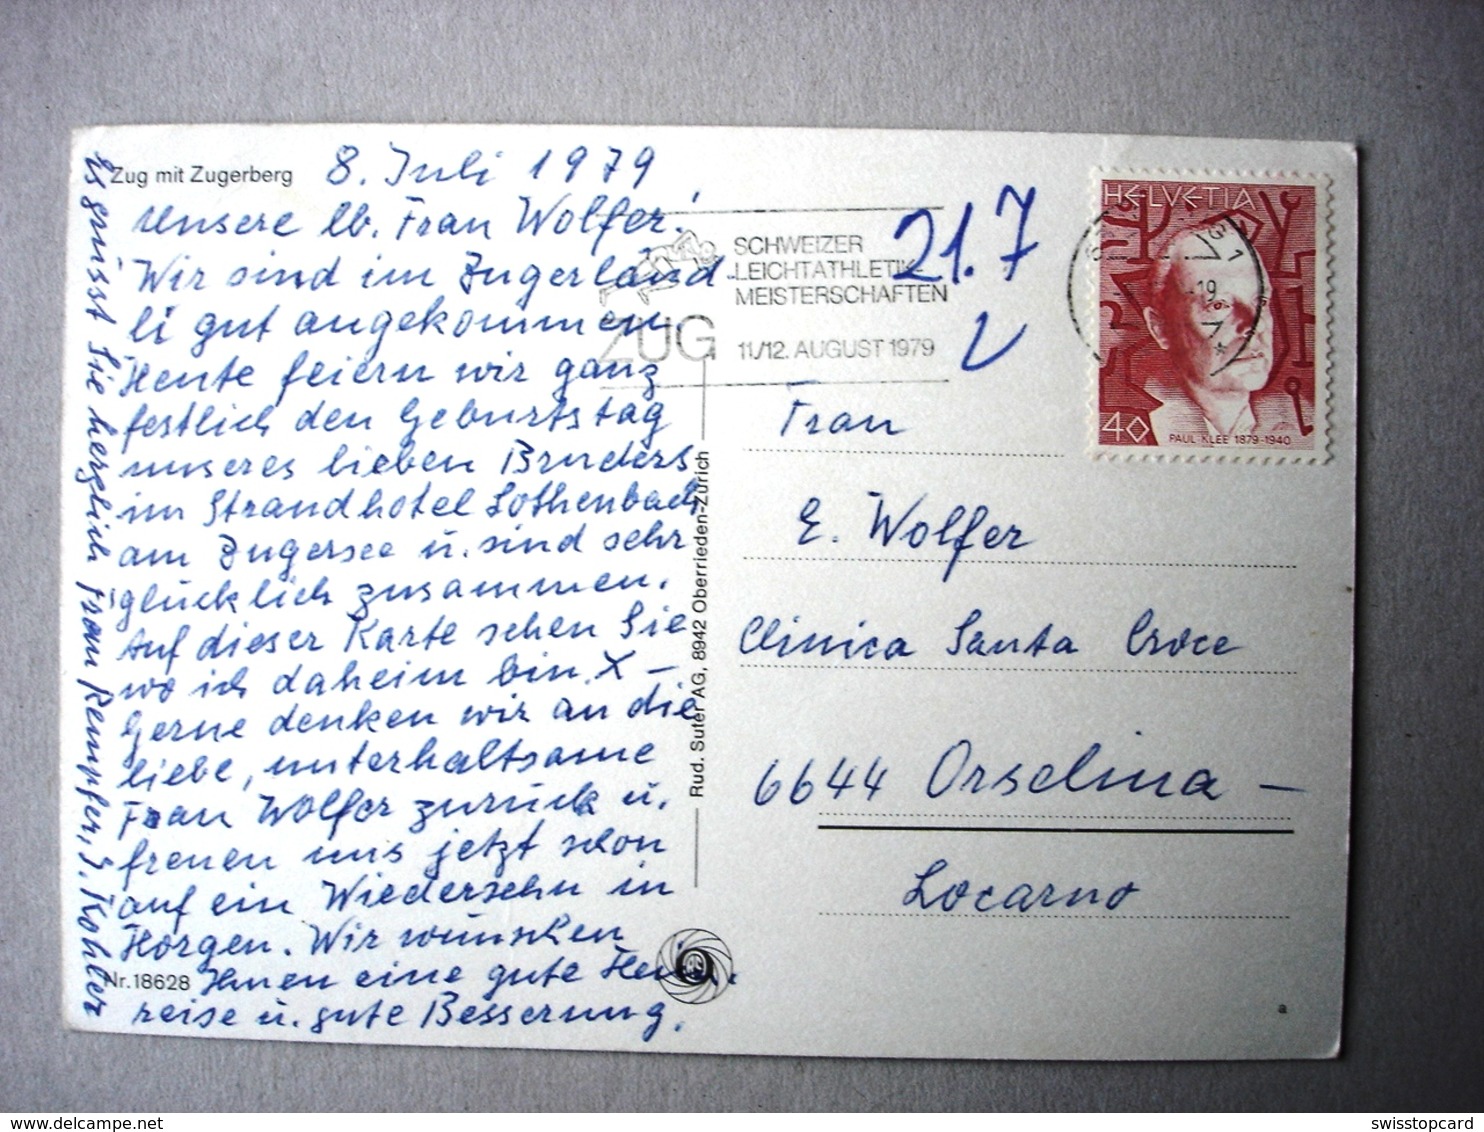 Zug mit Zugerberg
8. Juli 1979
Unsere lb. Frau Wolfer!
Wir sind im Zugerländ-
li gut angekommen.
Heute feiern wir ganz
festlich den Geburtstag
unseres lieben Bruders
im Strandhotel Lothenbach
am Zugersee u. sind sehr
glücklich zusammen.
Auf dieser Karte sehen Sie
wo ich daheim bin X –
Gerne denken wir an die
liebe, unterhaltsame
Frau Wolfer zurück u.
freuen uns jetzt schon
auf ein Wiedersehn in
Horgen. Wir wünschen
Ihnen eine gute Heim-
reise u. gute Besserung.
Es grüsst Sie herzlich Frau Kempfer, S. Kohler
Nr. 18628
Rud. Suter AG, 8942 Oberrieden-Zürich
SCHWEIZER
LEICHTATHLETIK-
MEISTERSCHAFTEN
ZUG 11./12. AUGUST 1979
21.7
HELVETIA
40
PAUL KLEE 1879-1940
Frau
E. Wolfer
Clinica Santa Croce
6644 Orselina –
Locarno
a
swisstopcard